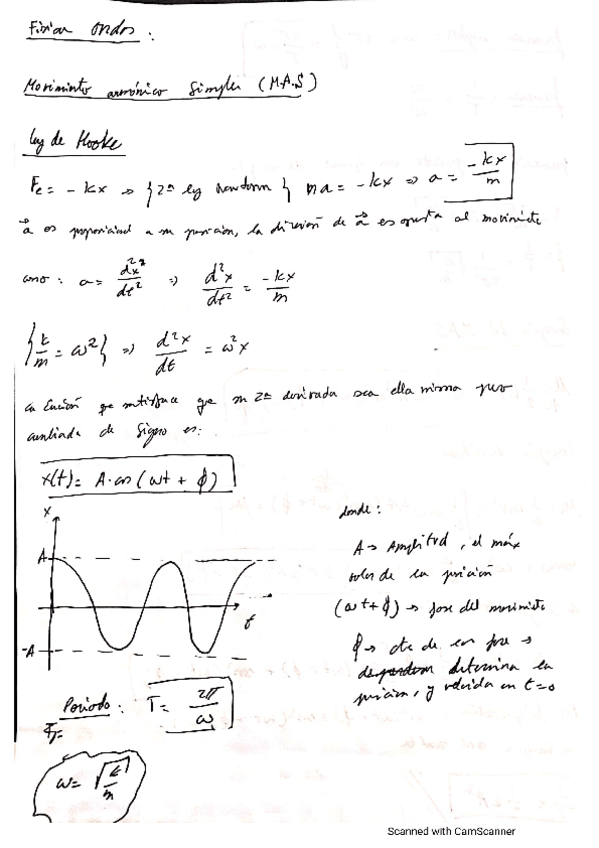 Física ondas :
Movimiento armónico Simple (M.A.S)
Ley de Hooke
Fe = - kx => {2ª ley newton} ma = -kx => a = -kx/m
a⃗ es proporcional a su posición, la dirección de a⃗ es opuesta al movimiento
como : a = d²x/dt² => d²x/dt² = -kx/m
{k/m = ω²} => d²x/dt = ω²x
la función que satisface que su 2ª derivada sea ella misma pero
cambiada de signo es:
x(t) = A·cos(ωt + ϕ)
x
A
-A
t
donde:
A -> Amplitud, el máx
valor de la posición
(ωt+ϕ) -> fase del movimiento
ϕ -> cte de la fase ->
determina la
posición, y velocida en t=0
Periodo : T = 2π/ω
ω = √k/m
Scanned with CamScanner